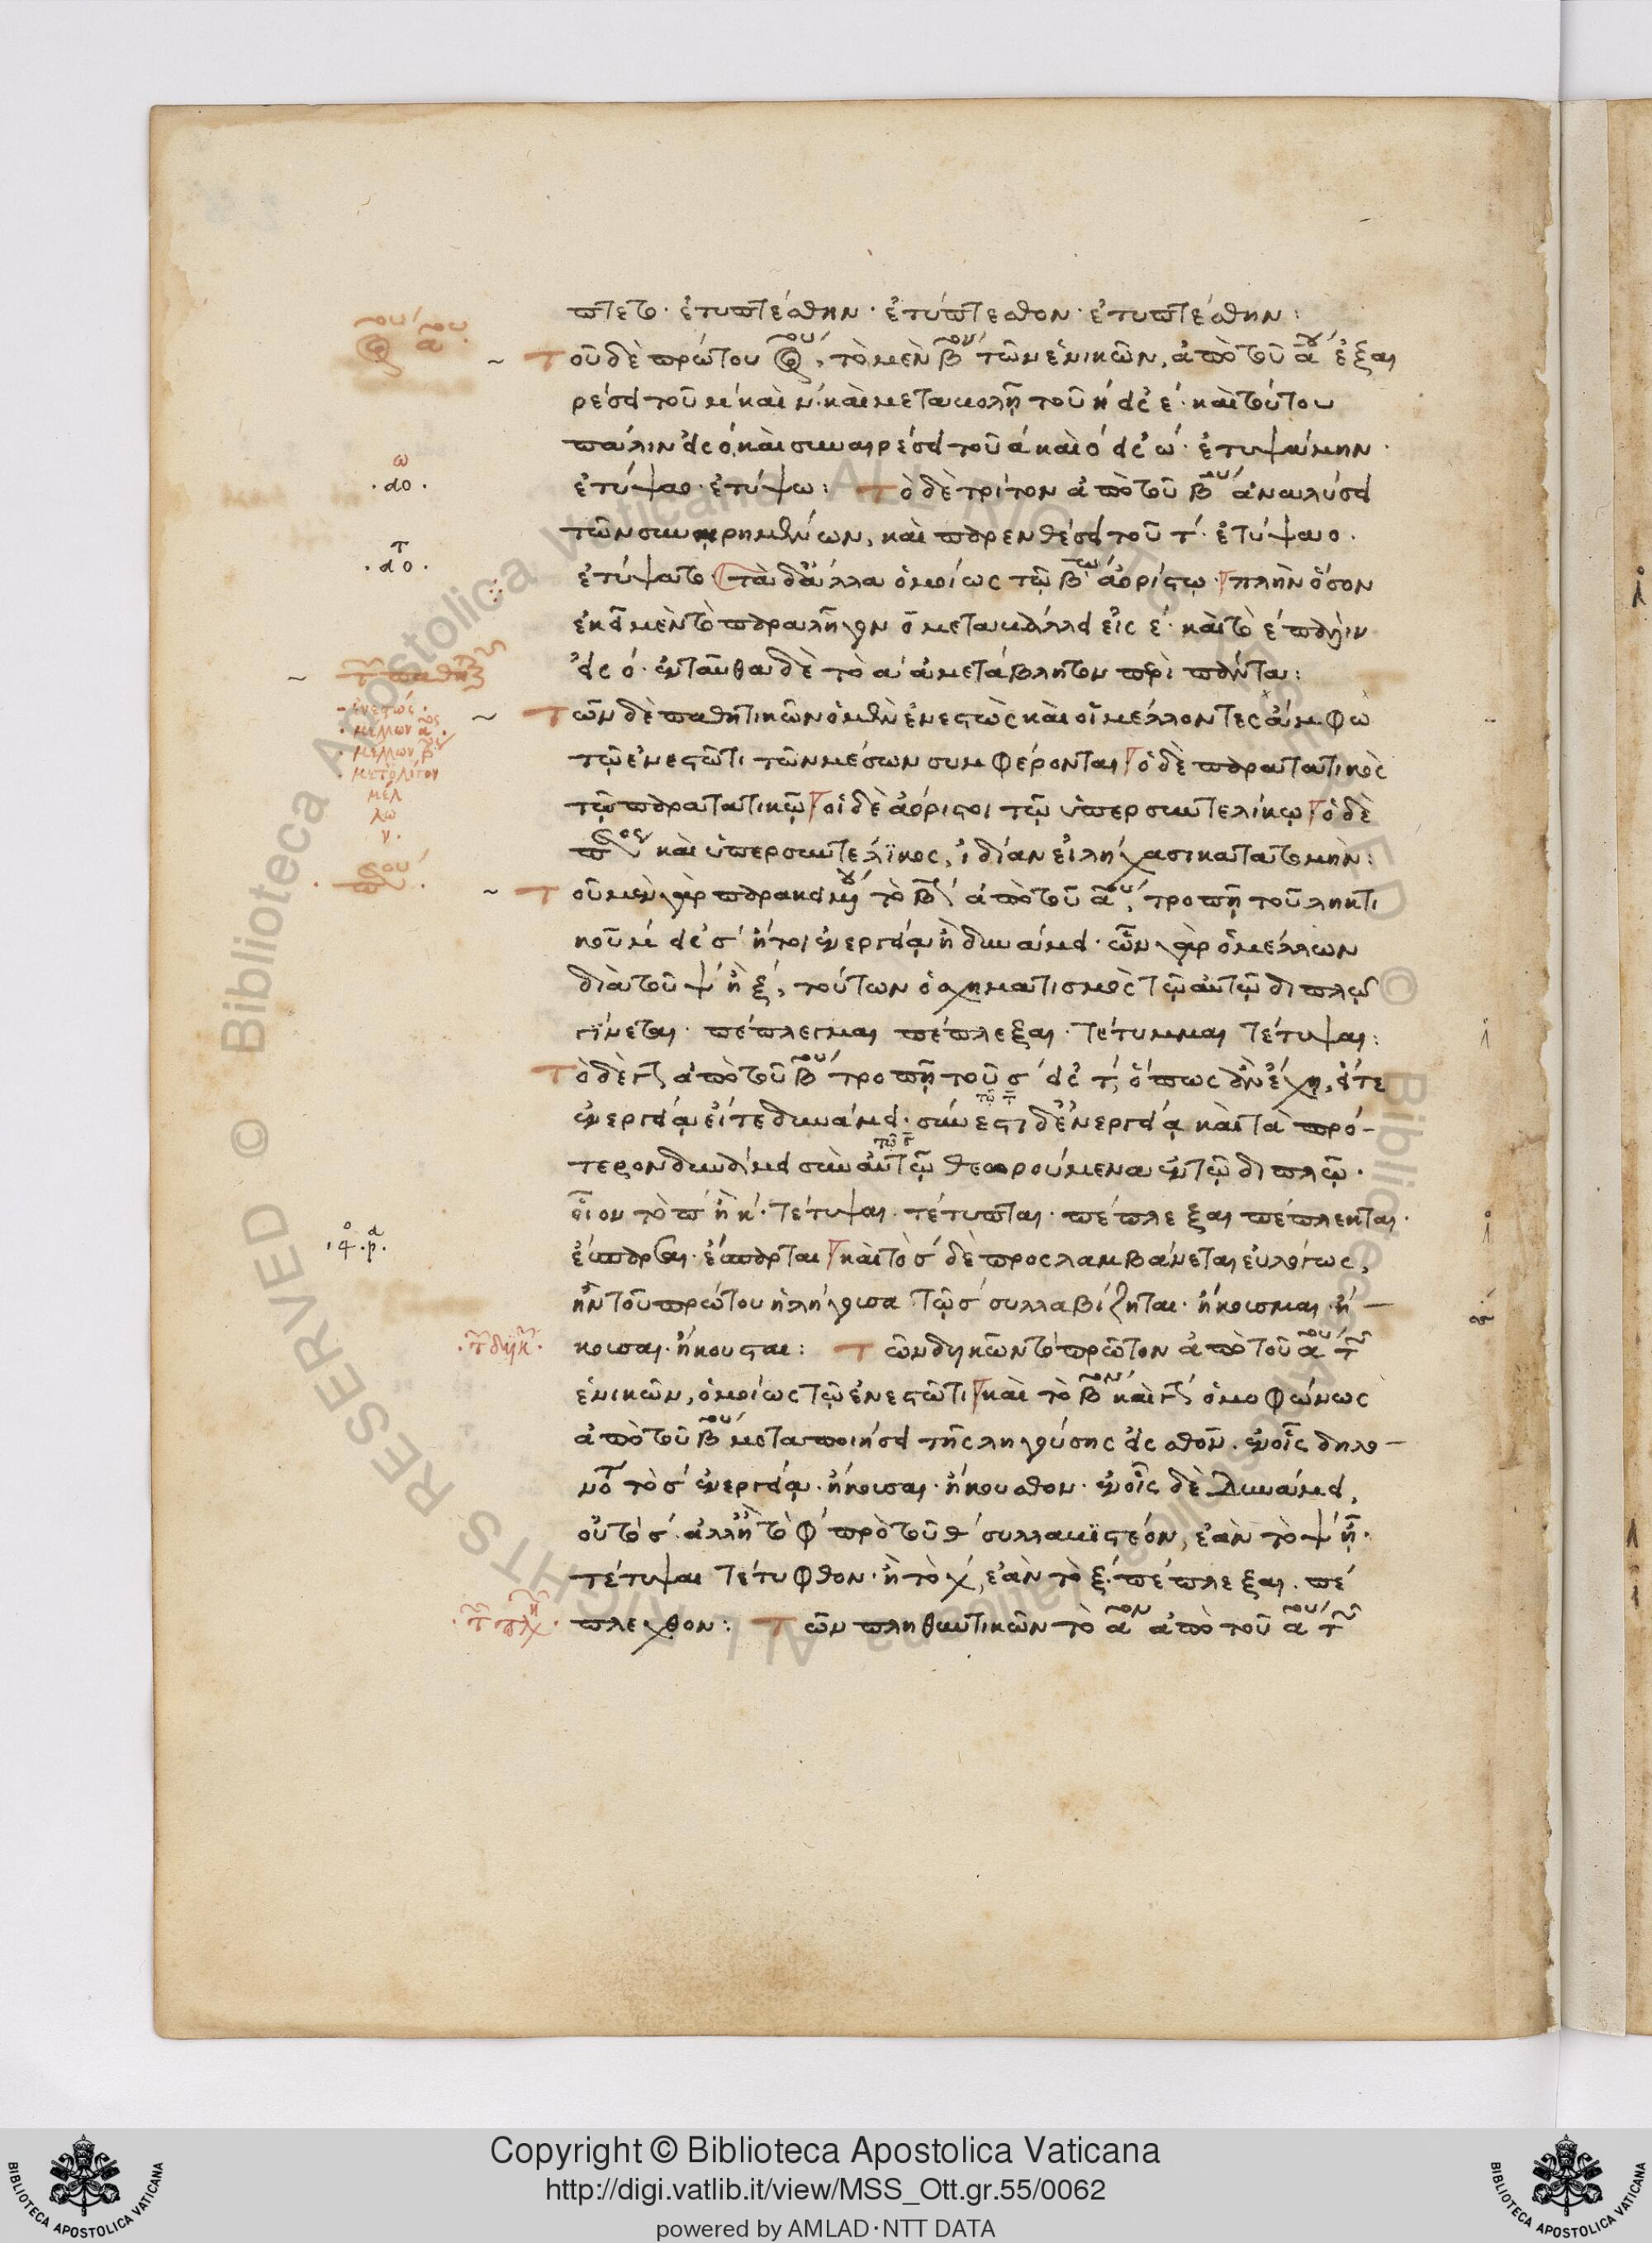 πτετο· ἐτυπτέσθην· ἐτύπτεσθον· ἐτυπτέσθην:
Τοῦ δὲ πρώτου, τὸ μὲν βον τῶν ἑνικῶν, ἀπὸ τοῦ αου ἐξαι
ρέσει τοῦ μ´ καὶ ν´· καὶ μεταβολῇ τοῦ η´ εἰς ε´· καὶ τούτου
πάλιν εἰς ο´, καὶ συναιρέσει τοῦ α´ καὶ ο´ εἰς ω´· ἐτυψάμην·
ω
·αο·
ἐτύψαο· ἐτύψω: Τὸ δὲ τρίτον ἀπὸ τοῦ βου ἀναλύσει
τῶν συνῃρημένων, καὶ παρενθέσει τοῦ τ´· ἐτύψαο·
τ
·αο·
ἐτύψατο τὰ δ᾽ ἄλλα ὁμοίως τῷ βω ἀορίστῳ· πλὴν ὅσον
ἐκεῖ μὲν τὸ παραλῆγον ο μεταβάλλει εἰς ε´· καὶ τὸ ε´ πάλιν
εἰς ο´· ἐνταῦθα δὲ τὸ α´ ἀμετάβλητον περὶ πάντα:
·ἐνεστώς·
·μέλλων αος·
·μέλλων βος
·μετ᾽ ὀλίγον
μέλ
λω
ν·
Τῶν δὲ παθητικῶν ὁ μὲν ἐνεστὼς καὶ οἱ μέλλοντες ἄμφω
τῷ ἐνεστῶτι τῶν μέσων συμφέρονται ὁ δὲ παρατατικὸς
τῷ παρατατικῷ οἱ δὲ ἀόριστοι τῷ ὑπερσυντελίκῳ ὁ δὲ
καὶ ὑπερσυντέλϊκος, ἰδίαν εἰλήχασι κατὰ τομήν:
Τοῦ μὲν γὰρ παρακειμένου τὸ β ἀπὸ τοῦ αου, τροπῇ τοῦ ληκτι
κοῦ μ´ εἰς σ´ ἤτοι ἐνεργείᾳ ἢ δυνάμει· ὧν γὰρ ὁ μέλλων
διὰ τοῦ ψ´ ἢ ξ´, τούτων ὁ σχηματισμὸς τῷ αὐτῷ διπλῷ
γίνεται· πέπλεγμαι πέπλεξαι· τέτυμμαι τέτυψαι:
Τὸ δὲ γ ἀπὸ τοῦ βου τροπῇ τοῦ σ´ εἰς τ´, ὅπως ἂν ἔχῃ, εἴτε
ἐνεργείᾳ εἴτε δυνάμει· σύνεστι δ᾽ ἐνεργείᾳ καὶ τὰ πρό-
τερον δυνάμει σὺν αὐτῷ θεωρούμενα ἐν τῷ διπλῷ·
οἷον τὸ π´ ἢ κ´· τέτυψαι· τέτυπται· πέπλεξαι πέπλεκται·
ἔσπαρσαι· ἔσπαρται καὶ τὸ σ´ δὲ προσλαμβάνεται εὐλόγως,
ἢν τοῦ πρώτου ἡ λήγουσα τῷ σ´ συλλαβίζηται· ἤκουσμαι· ἤ-
κουσαι· ἤκουσται: Τῶν δυϊκῶν τὸ πρῶτον ἀπὸ τοῦ αου τ
ἑνικῶν, ὁμοίως τῷ ἐνεστῶτι καὶ τὸ βον καὶ γ ὁμοφώνως
ἀπὸ τοῦ βου μεταποιήσει τῆς ληγούσης εἰς σθον· ἐν οἷς δηλο-
νότι τὸ σ´ ἐνεργείᾳ· ἤκουσαι· ἤκουσθον· ἐν οἷς δὲ δυνάμει,
οὐ τὸ σ´ ἀλλ᾽ ἢ τὸ φ´ πρὸ τοῦ θ´ συλλαβϊστέον, ἐὰν τὸ ψ´ ᾖ·
τέτυψαι τέτυφθον· ἢ τὸ χ´, ἐὰν τὸ ξ´· πέπλεξαι· πέ
πλεχθον: Τῶν πληθυντικῶν τὸ αον ἀπὸ τοῦ αου τ
Copyright © Biblioteca Apostolica Vaticana
http://digi.vatlib.it/view/MSS_Ott.gr.55/0062
powered by AMLAD·NTT DATA
BIBLIOTECA APOSTOLICA VATICANA
BIBLIOTECA APOSTOLICA VATICANA